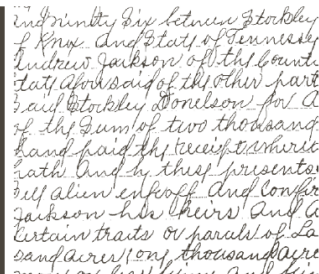 and ninety six between Stockley
of Knox and State of Tennessee
Andrew Jackson of the Count
State aforesaid of the other part
Said Stockley Donelson for a
of the Sum of two thousand
hand paid the receipt
hath and by these presents
Sell alien enfeoff and Confir
Jackson his heirs and a
Certain traits or parals of La
sand acres (ong thousand acre